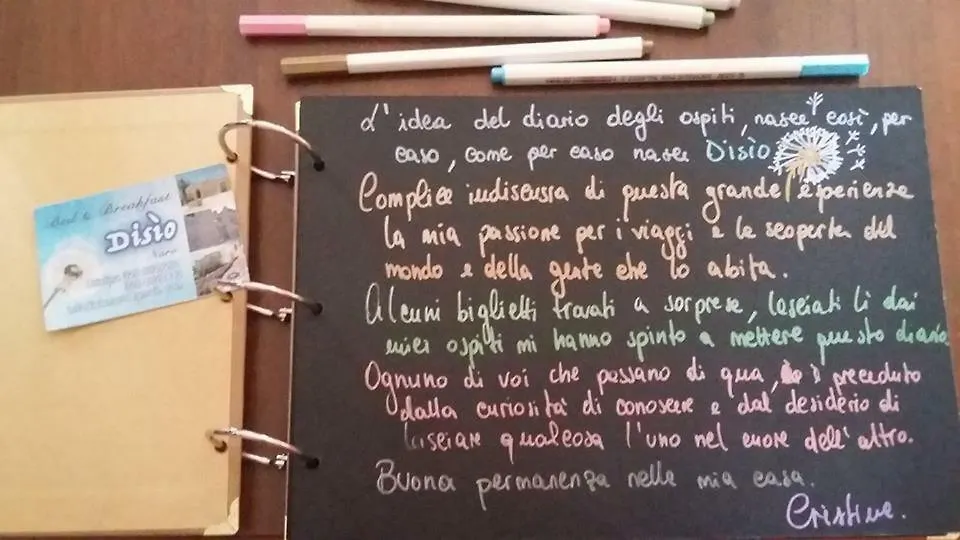 Bed & Breakfast
Disìo
L'idea del diario degli ospiti, nasce così, per
caso, come per caso nasce Disìo
Complice indiscussa di questa grande esperienza
la mia passione per i viaggi e la scoperta del
mondo e della gente che lo abita.
Alcuni biglietti trovati a sorpresa, lasciati lì dai
miei ospiti mi hanno spinto a mettere questo diario
Ognuno di voi che passano di qua, è preceduto
dalla curiosità di conoscere e dal desiderio di
lasciare qualcosa l'uno nel cuore dell'altro.
Buona permanenza nella mia casa.
Cristina.